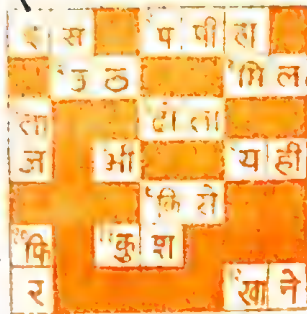 इस पपीहा
उठ मिल
ता दाता
ज भी यही
कि
फि कुश
र खाने